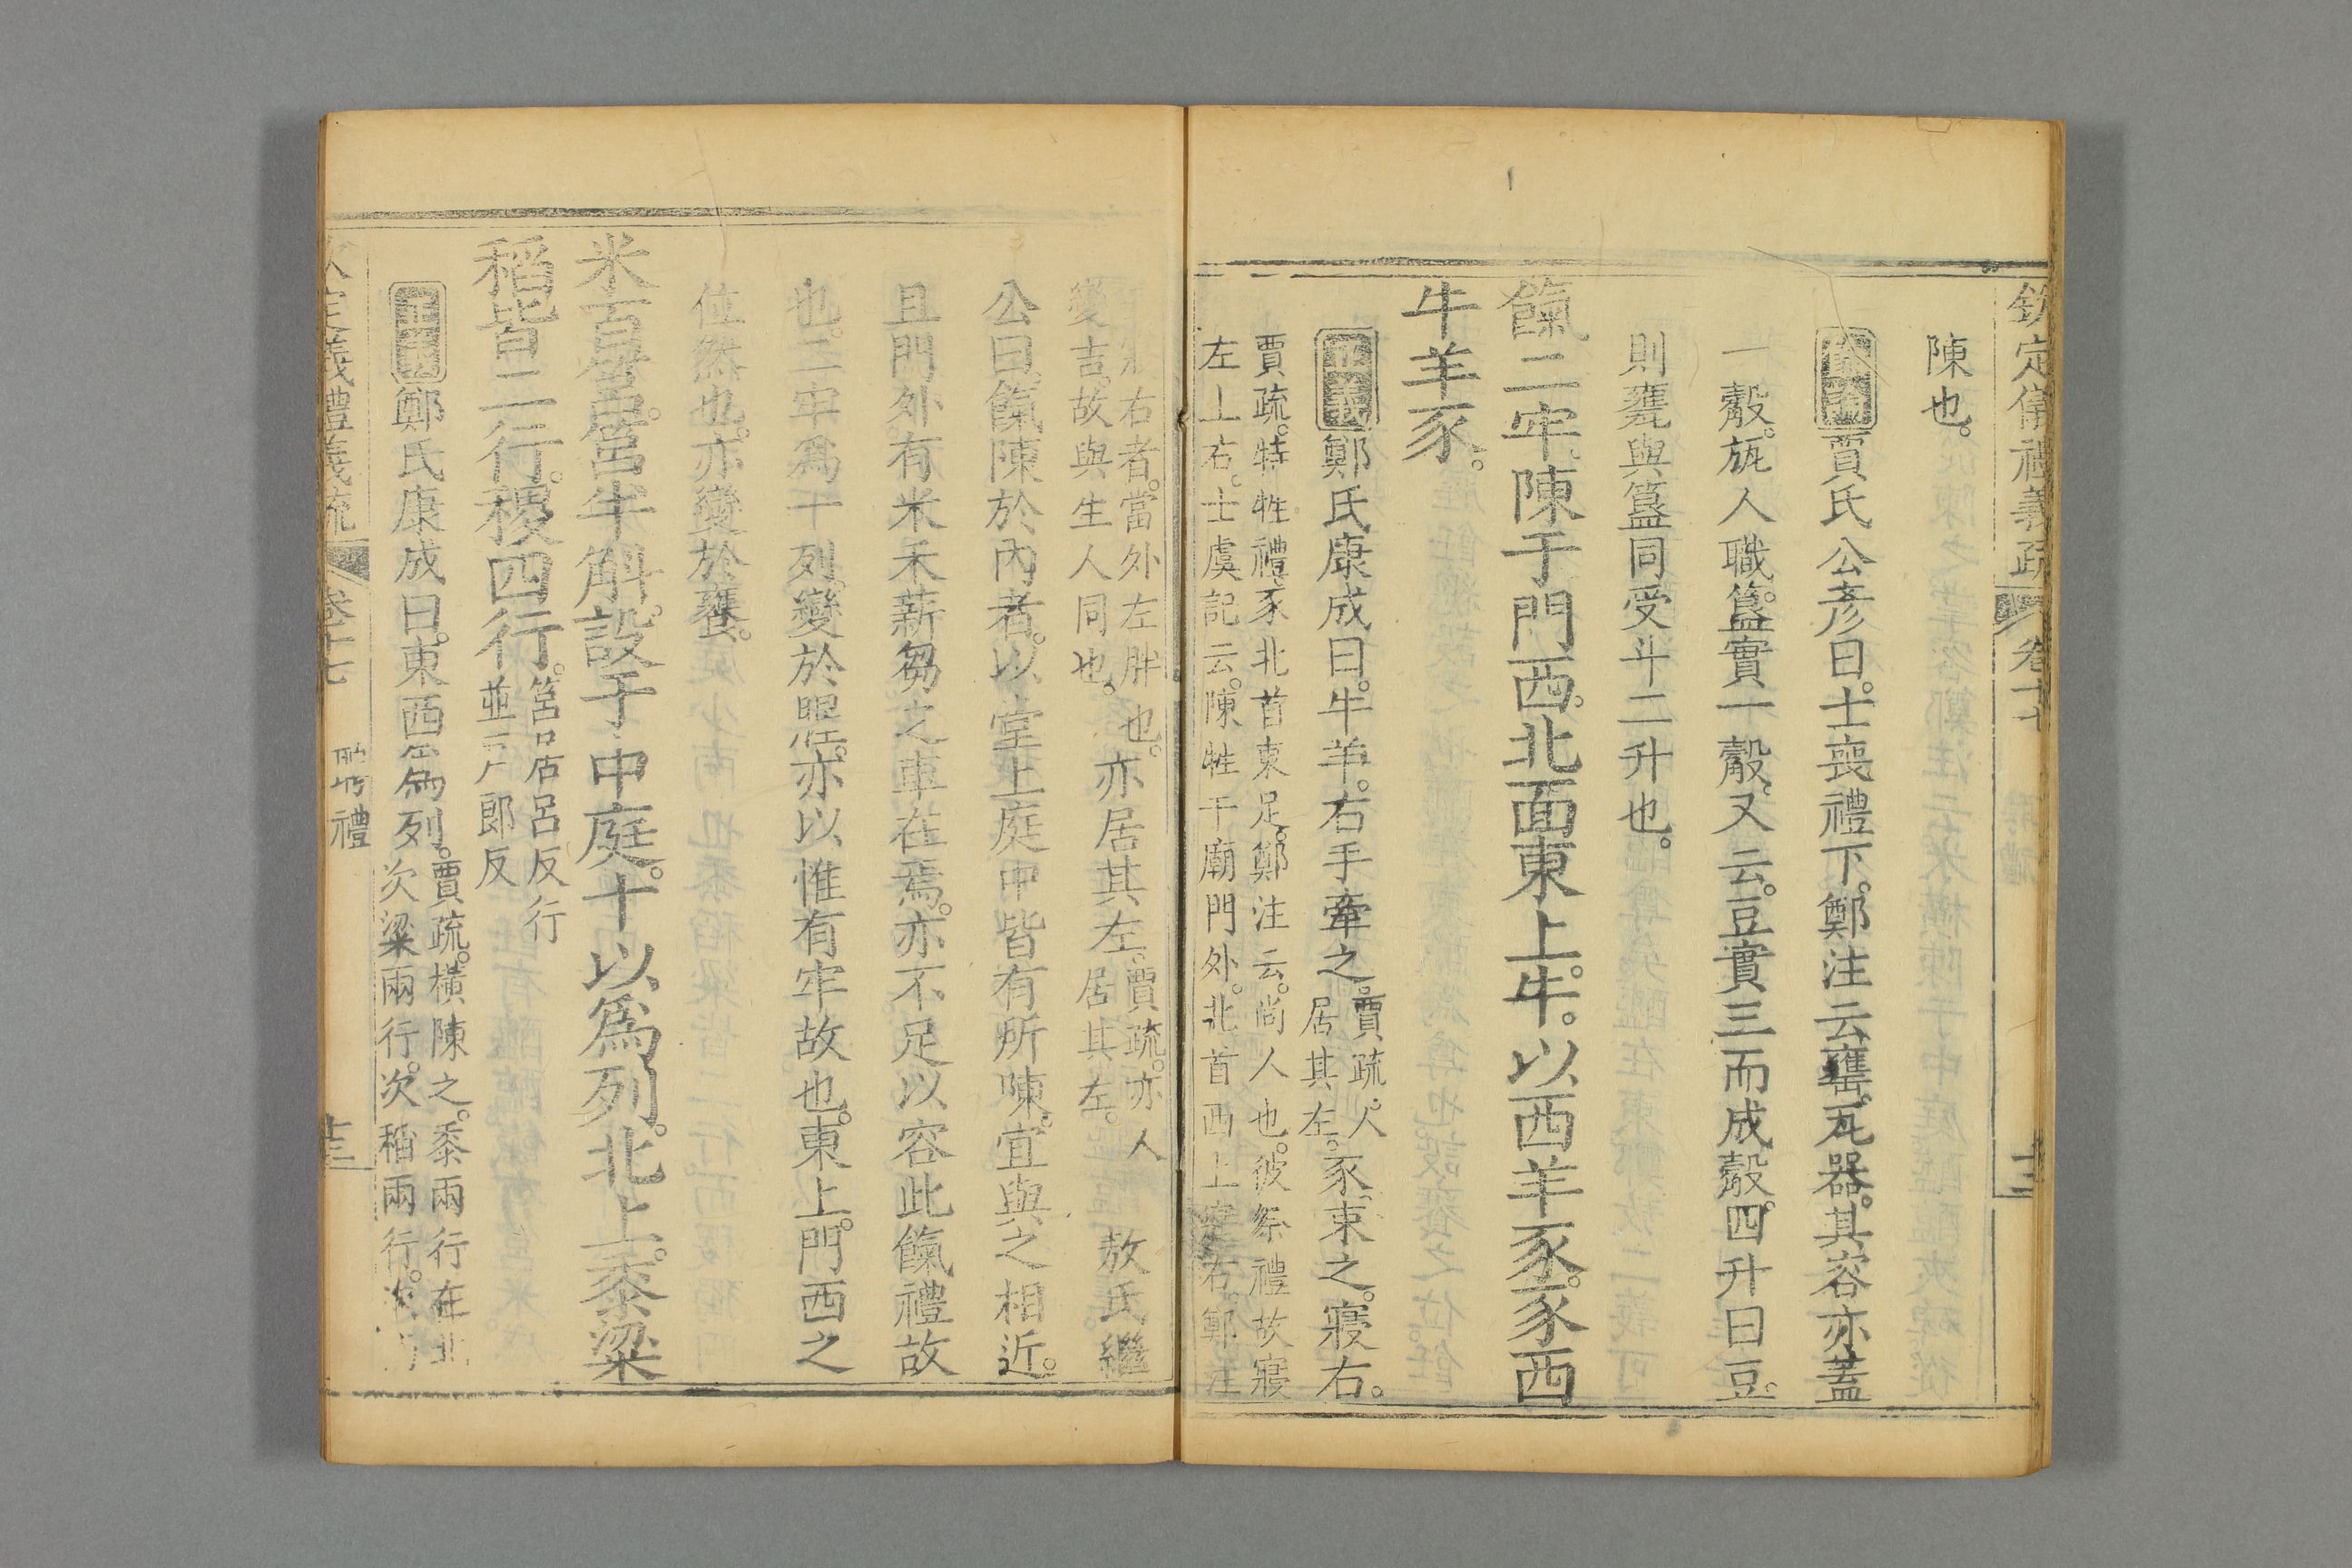 欽定儀禮義疏 卷十七
陳也。
賈氏公彥曰。士喪禮下。鄭注云。罋。瓦器。其容亦蓋
一觳。瓬人職。簋實一觳。又云。豆實三而成觳。四升曰豆。
則罋與簋同受斗二升也。
餼二牢。陳于門西。北面東上。牛。以西羊豕。豕西
牛羊豕。
正義 鄭氏康成曰。牛羊。右手牽之。
賈疏。人
居其左。
豕。束之。寢右。
賈疏。特牲禮。豕北首東足。鄭注云。尚人也。彼祭禮故寢
左上右。士虞記云。陳牲于廟門外。北首西上寢右。鄭注
右者。當外左胖也。
變吉。故與生人同也。
亦居其左。
賈疏。亦人
居其左。
敖氏繼
公曰。餼陳於內者。以堂上庭中皆有所陳。宜與之相近。
且門外有米禾薪芻之車在焉。亦不足以容此餼禮故
也。二牢爲十列。變於腥。亦以惟有牢故也。東上。門西之
位然也。亦變於饔。
米百筥。筥半斛。設于中庭。十以爲列。北上。黍粱
稻皆二行。稷四行。
筥居呂反行
並戶郎反
正義 鄭氏康成曰。東西爲列。
賈疏。橫陳之。黍兩行在北
次粱兩行。次稻兩行。次
定義禮義疏 卷十七 聘禮 十三